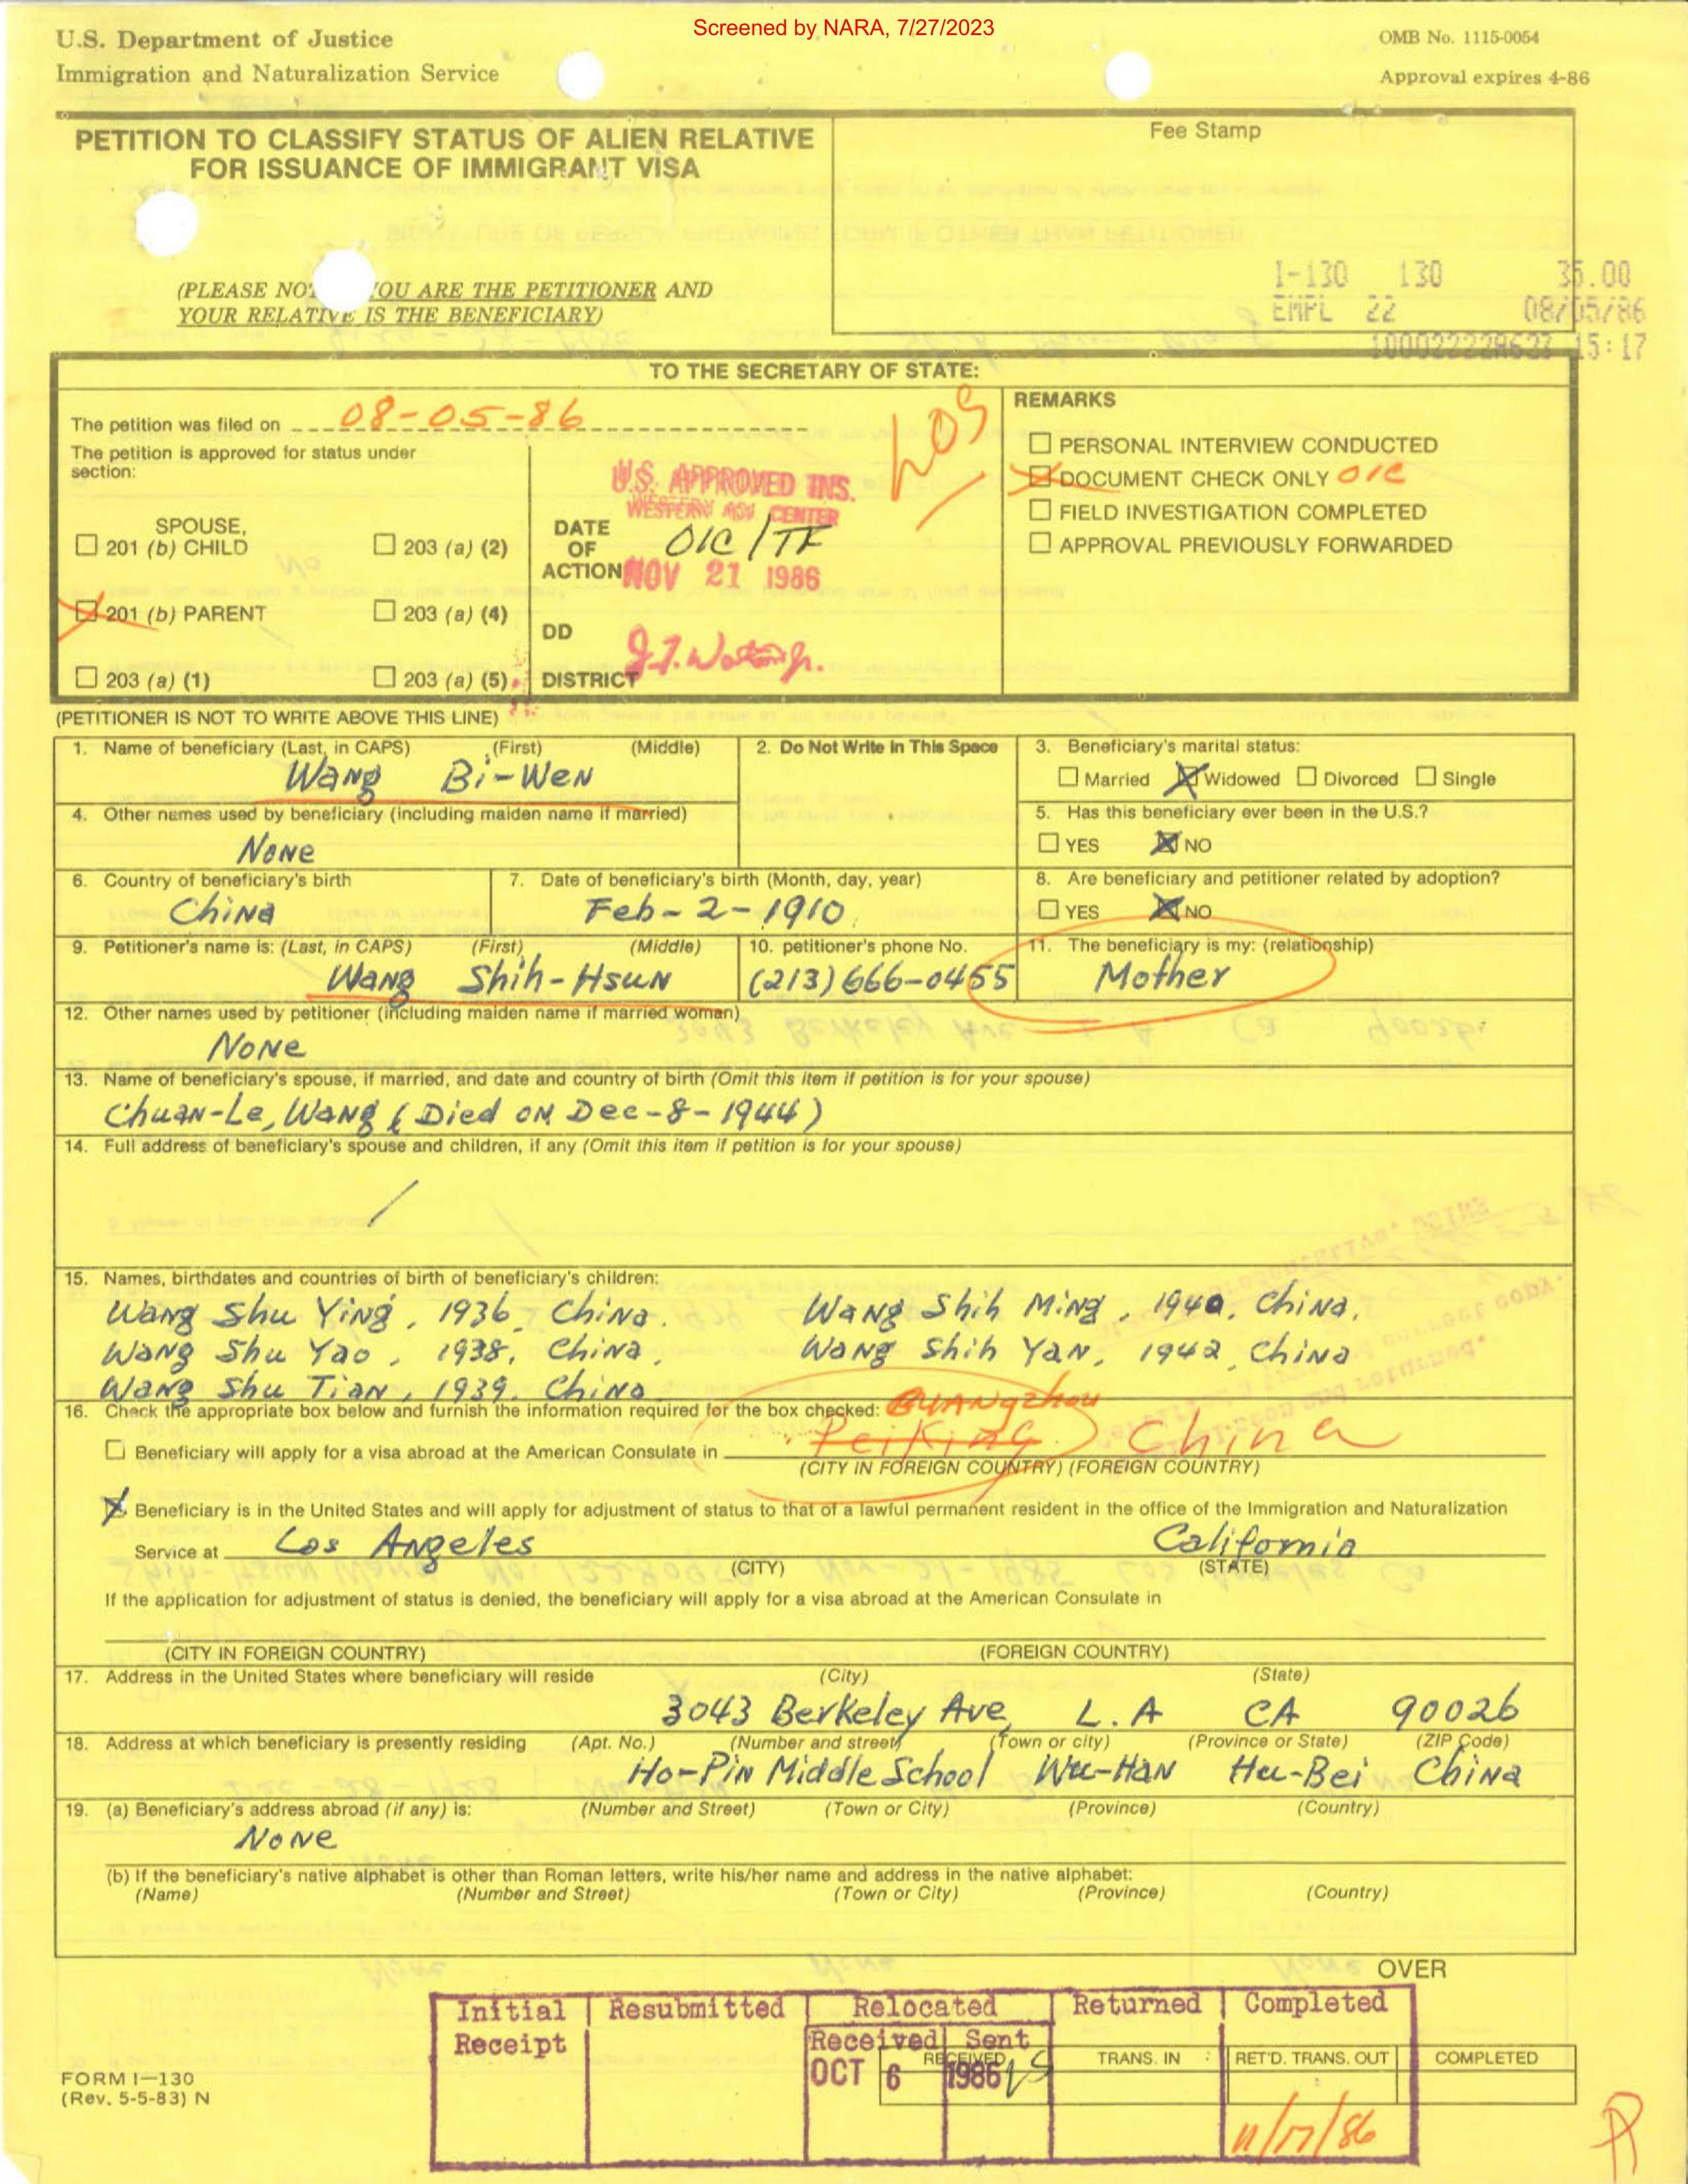 Screened by NARA, 7/27/2023
U.S. Department of Justice
Immigration and Naturalization Service
OMB No. 1115-0054
Approval expires 4-86
PETITION TO CLASSIFY STATUS OF ALIEN RELATIVE
FOR ISSUANCE OF IMMIGRANT VISA
(PLEASE NOT YOU ARE THE PETITIONER AND
YOUR RELATIVE IS THE BENEFICIARY)
Fee Stamp
I-130 130 35.00
EMPL 22 08/05/86
15:17
TO THE SECRETARY OF STATE:
The petition was filed on 08-05-86
The petition is approved for status under
section:
SPOUSE,
☐ 201 (b) CHILD ☐ 203 (a) (2)
☒ 201 (b) PARENT ☐ 203 (a) (4)
☐ 203 (a) (1) ☐ 203 (a) (5)
U.S. APPROVED INS.
WESTERN ADJ CENTER
DATE
OF
ACTION
OIC/TF
NOV 21 1986
DD
DISTRICT
LOS
REMARKS
☐ PERSONAL INTERVIEW CONDUCTED
☒ DOCUMENT CHECK ONLY OIC
☐ FIELD INVESTIGATION COMPLETED
☐ APPROVAL PREVIOUSLY FORWARDED
(PETITIONER IS NOT TO WRITE ABOVE THIS LINE)
1. Name of beneficiary (Last, in CAPS) (First) (Middle)
Wang Bi-Wen
2. Do Not Write in This Space
3. Beneficiary's marital status:
☐ Married ☒ Widowed ☐ Divorced ☐ Single
4. Other names used by beneficiary (including maiden name if married)
None
5. Has this beneficiary ever been in the U.S.?
☐ YES ☒ NO
6. Country of beneficiary's birth
China
7. Date of beneficiary's birth (Month, day, year)
Feb-2-1910
8. Are beneficiary and petitioner related by adoption?
☐ YES ☒ NO
9. Petitioner's name is: (Last, in CAPS) (First) (Middle)
Wang Shih-Hsun
10. petitioner's phone No.
(213) 666-0455
11. The beneficiary is my: (relationship)
Mother
12. Other names used by petitioner (including maiden name if married woman)
None
13. Name of beneficiary's spouse, if married, and date and country of birth (Omit this item if petition is for your spouse)
Chuan-Le, Wang (Died on Dec-8-1944)
14. Full address of beneficiary's spouse and children, if any (Omit this item if petition is for your spouse)
/
15. Names, birthdates and countries of birth of beneficiary's children:
Wang Shu Ying, 1936, China. Wang Shih Ming, 1940, China,
Wang Shu Yao, 1938, China, Wang Shih Yan, 1942, China
Wang Shu Tian, 1939. China
16. Check the appropriate box below and furnish the information required for the box checked: Guangzhou
☐ Beneficiary will apply for a visa abroad at the American Consulate in Peiking China
(CITY IN FOREIGN COUNTRY) (FOREIGN COUNTRY)
☒ Beneficiary is in the United States and will apply for adjustment of status to that of a lawful permanent resident in the office of the Immigration and Naturalization
Service at Los Angeles California
(CITY) (STATE)
If the application for adjustment of status is denied, the beneficiary will apply for a visa abroad at the American Consulate in
(CITY IN FOREIGN COUNTRY) (FOREIGN COUNTRY)
17. Address in the United States where beneficiary will reside (City) (State)
3043 Berkeley Ave, L.A CA 90026
18. Address at which beneficiary is presently residing (Apt. No.) (Number and street) (Town or city) (Province or State) (ZIP Code)
Ho-Pin Middle School Wu-Han Hu-Bei China
19. (a) Beneficiary's address abroad (if any) is: (Number and Street) (Town or City) (Province) (Country)
None
(b) If the beneficiary's native alphabet is other than Roman letters, write his/her name and address in the native alphabet:
(Name) (Number and Street) (Town or City) (Province) (Country)
OVER
Initial Receipt Resubmitted Relocated Returned Completed
Received Sent
RECEIVED TRANS. IN RET'D. TRANS. OUT COMPLETED
OCT 6 1986
11/17/86
FORM I-130
(Rev. 5-5-83) N